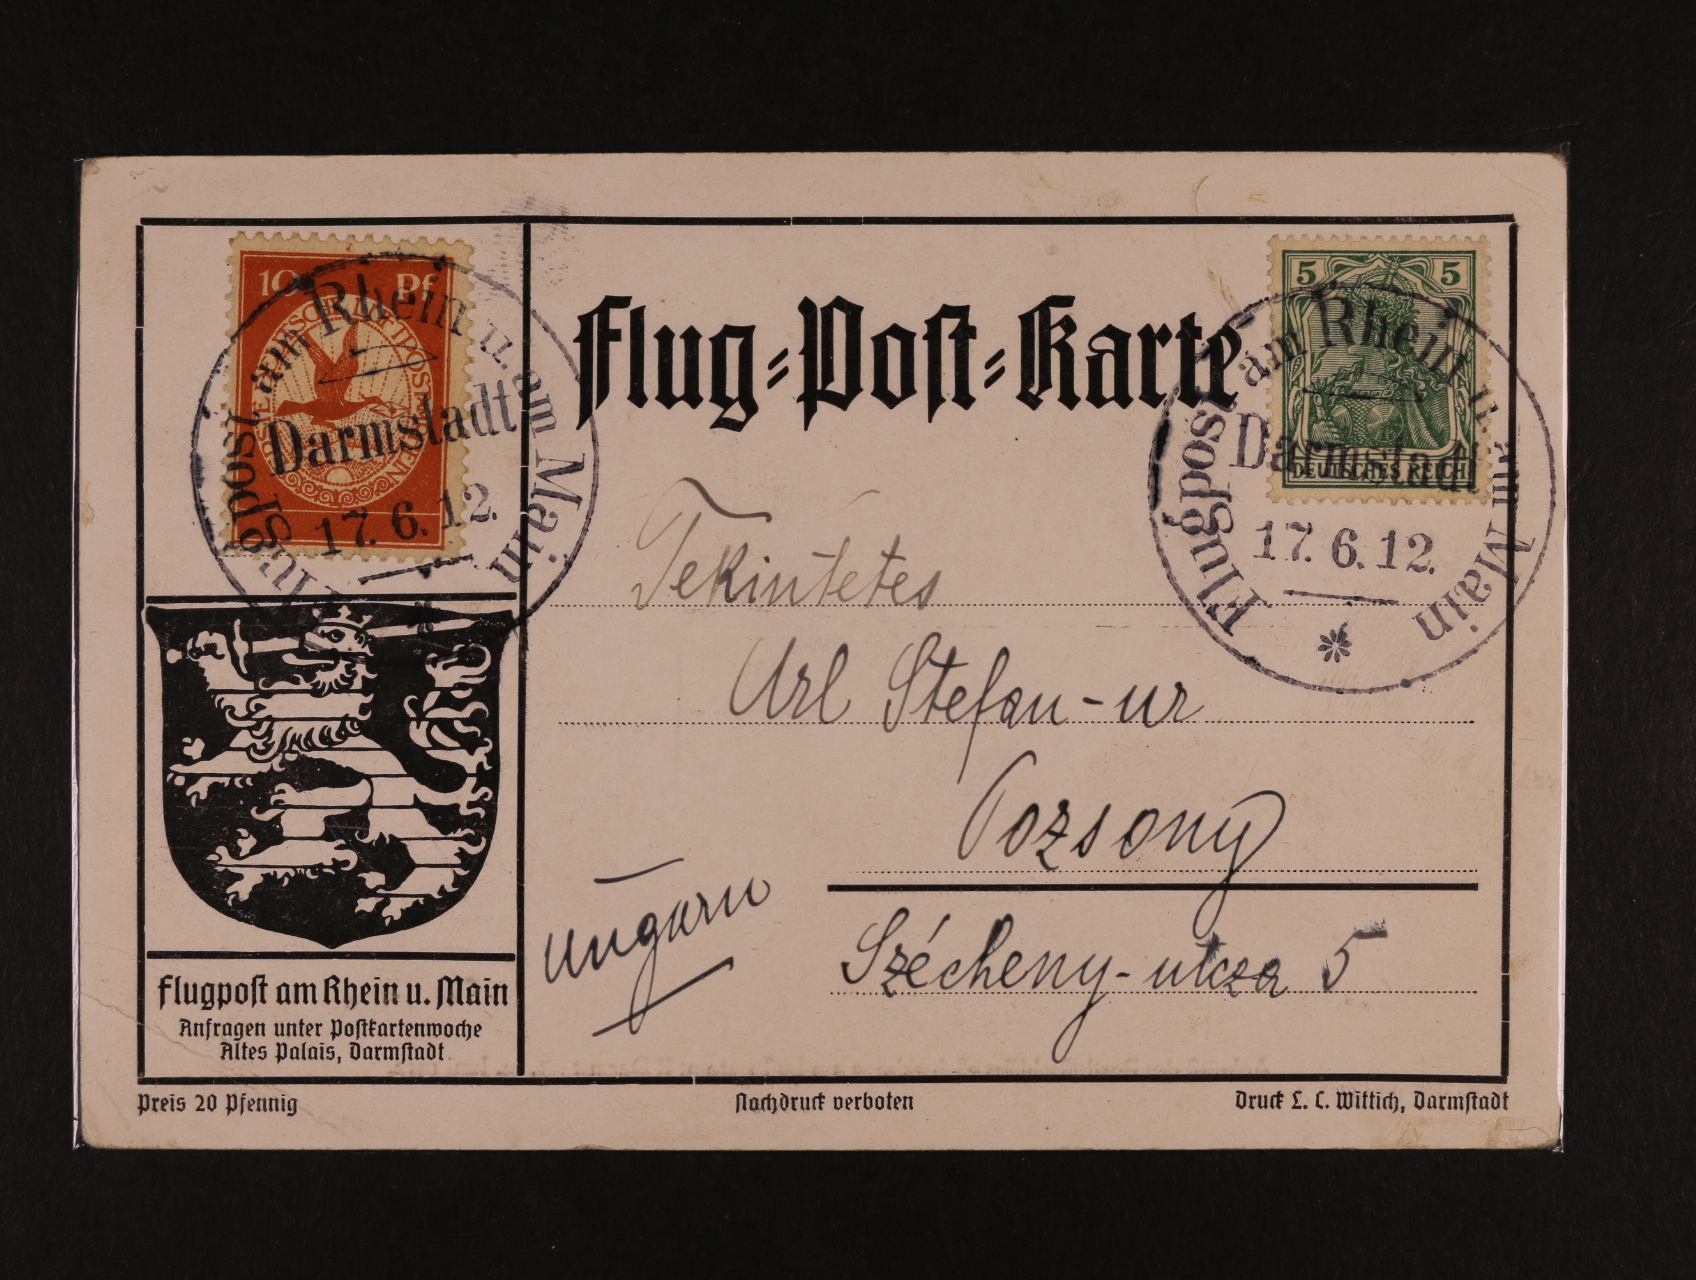 10 Pf
Flugpost am Rhein u. am Main
Darmstadt
17. 6. 12.
Flug-Post-Karte
5 5
DEUTSCHES REICH
Flugpost am Rhein u. am Main
Darmstadt
17. 6. 12.
Tekintetes
Url Stefan-ur
Pozsony
Ungarn
Szécheny-utcza 5
Flugpost am Rhein u. Main
Anfragen unter Postkartenwoche
Altes Palais, Darmstadt
Preis 20 Pfennig
Nachdruck verboten
Druck L. C. Wittich, Darmstadt